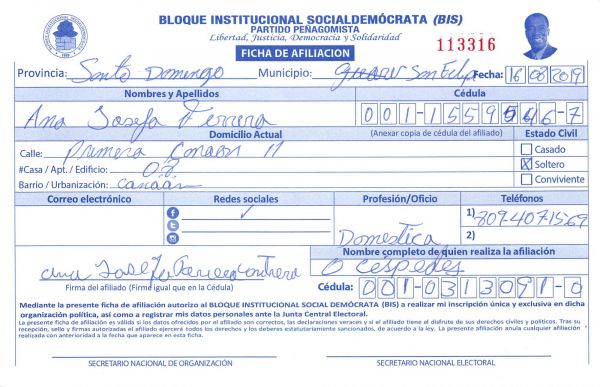 BLOQUE INSTITUCIONAL SOCIALDEMÓCRATA (BIS)
PARTIDO PEÑAGOMISTA
Libertad, Justicia, Democracia y Solidaridad
FICHA DE AFILIACION
113316
Provincia: Santo Domingo Municipio: San Felipe Fecha: 16/08/2019
Nombres y Apellidos Cédula
Ana Josefa Ferrera 001-1559546-7
Domicilio Actual (Anexar copia de cédula del afiliado) Estado Civil
Calle: Primera Canaan 11 Casado
#Casa / Apt. / Edificio: X Soltero
Barrio / Urbanización: Canaan Conviviente
Correo electrónico Redes sociales Profesión/Oficio Teléfonos
1) 809-4071569
Domestica 2)
Nombre completo de quien realiza la afiliación
Ana Josefa Ferrera Contrera O Cespedes
Firma del afiliado (Firme igual que en la Cédula) Cédula: 001-0313091-0
Mediante la presente ficha de afiliación autorizo al BLOQUE INSTITUCIONAL SOCIAL DEMÓCRATA (BIS) a realizar mi inscripción única y exclusiva en dicha
organización política, así como a registrar mis datos personales ante la Junta Central Electoral.
La presente ficha de afiliación es válida si los datos ofrecidos por el afiliado son correctos, las declaraciones veraces y si el afiliado tiene el disfrute de sus derechos civiles y políticos. Tras su
recepción, sello y firmas autorizadas el afiliado ejercerá todos los derechos y los deberes estatutariamente sancionados, de acuerdo a la ley. La presente afiliación anula cualquier afiliación
realizada con anterioridad a la fecha que aparece en esta ficha.
SECRETARIO NACIONAL DE ORGANIZACIÓN SECRETARIO NACIONAL ELECTORAL